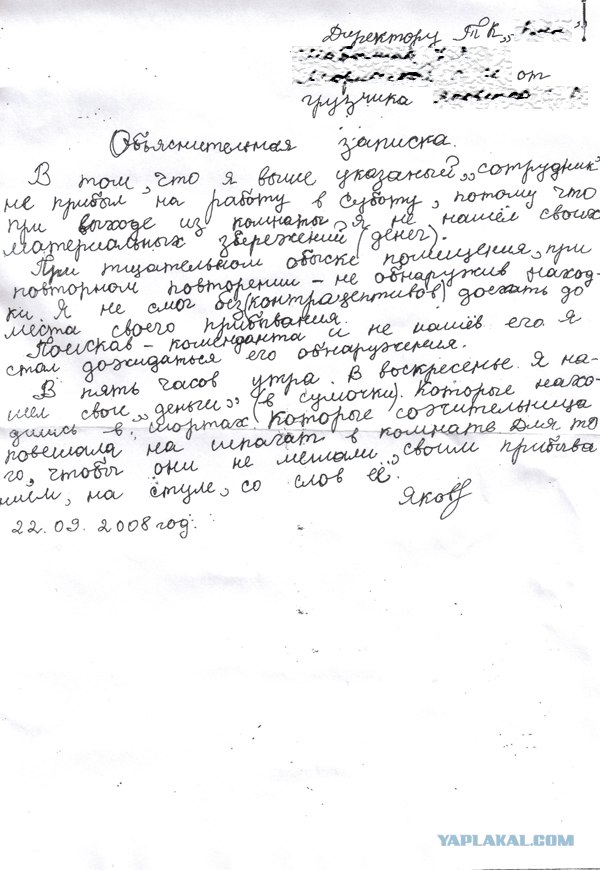 Директору ТК „
от
грузчика
Объяснительная записка.
В том, что я выше указаный „сотрудник"
не прибыл на работу в субботу, потому что
при выходе из комнаты я не нашёл своих
материальных збережений (денег).
При тщательном обыске помещения, при
повторном повторении – не обнаружив наход-
ки. Я не смог без (контрацептивов) доехать до
места своего прибывания.
Поискав – коменданта и не нашёв его я
стал дожидаться его обнаружения.
В пять часов утра. В воскресенье. Я на-
шел свои „деньги" (в сумочки). Которые нахо-
дились в шортах. Которые сожительница
повешала на шпагат в комнате для то
го, чтобы они не мешали своим прибыва
нием, на стуле, со слов её.
Яков
22.09.2008 год.
YAPLAKAL.COM